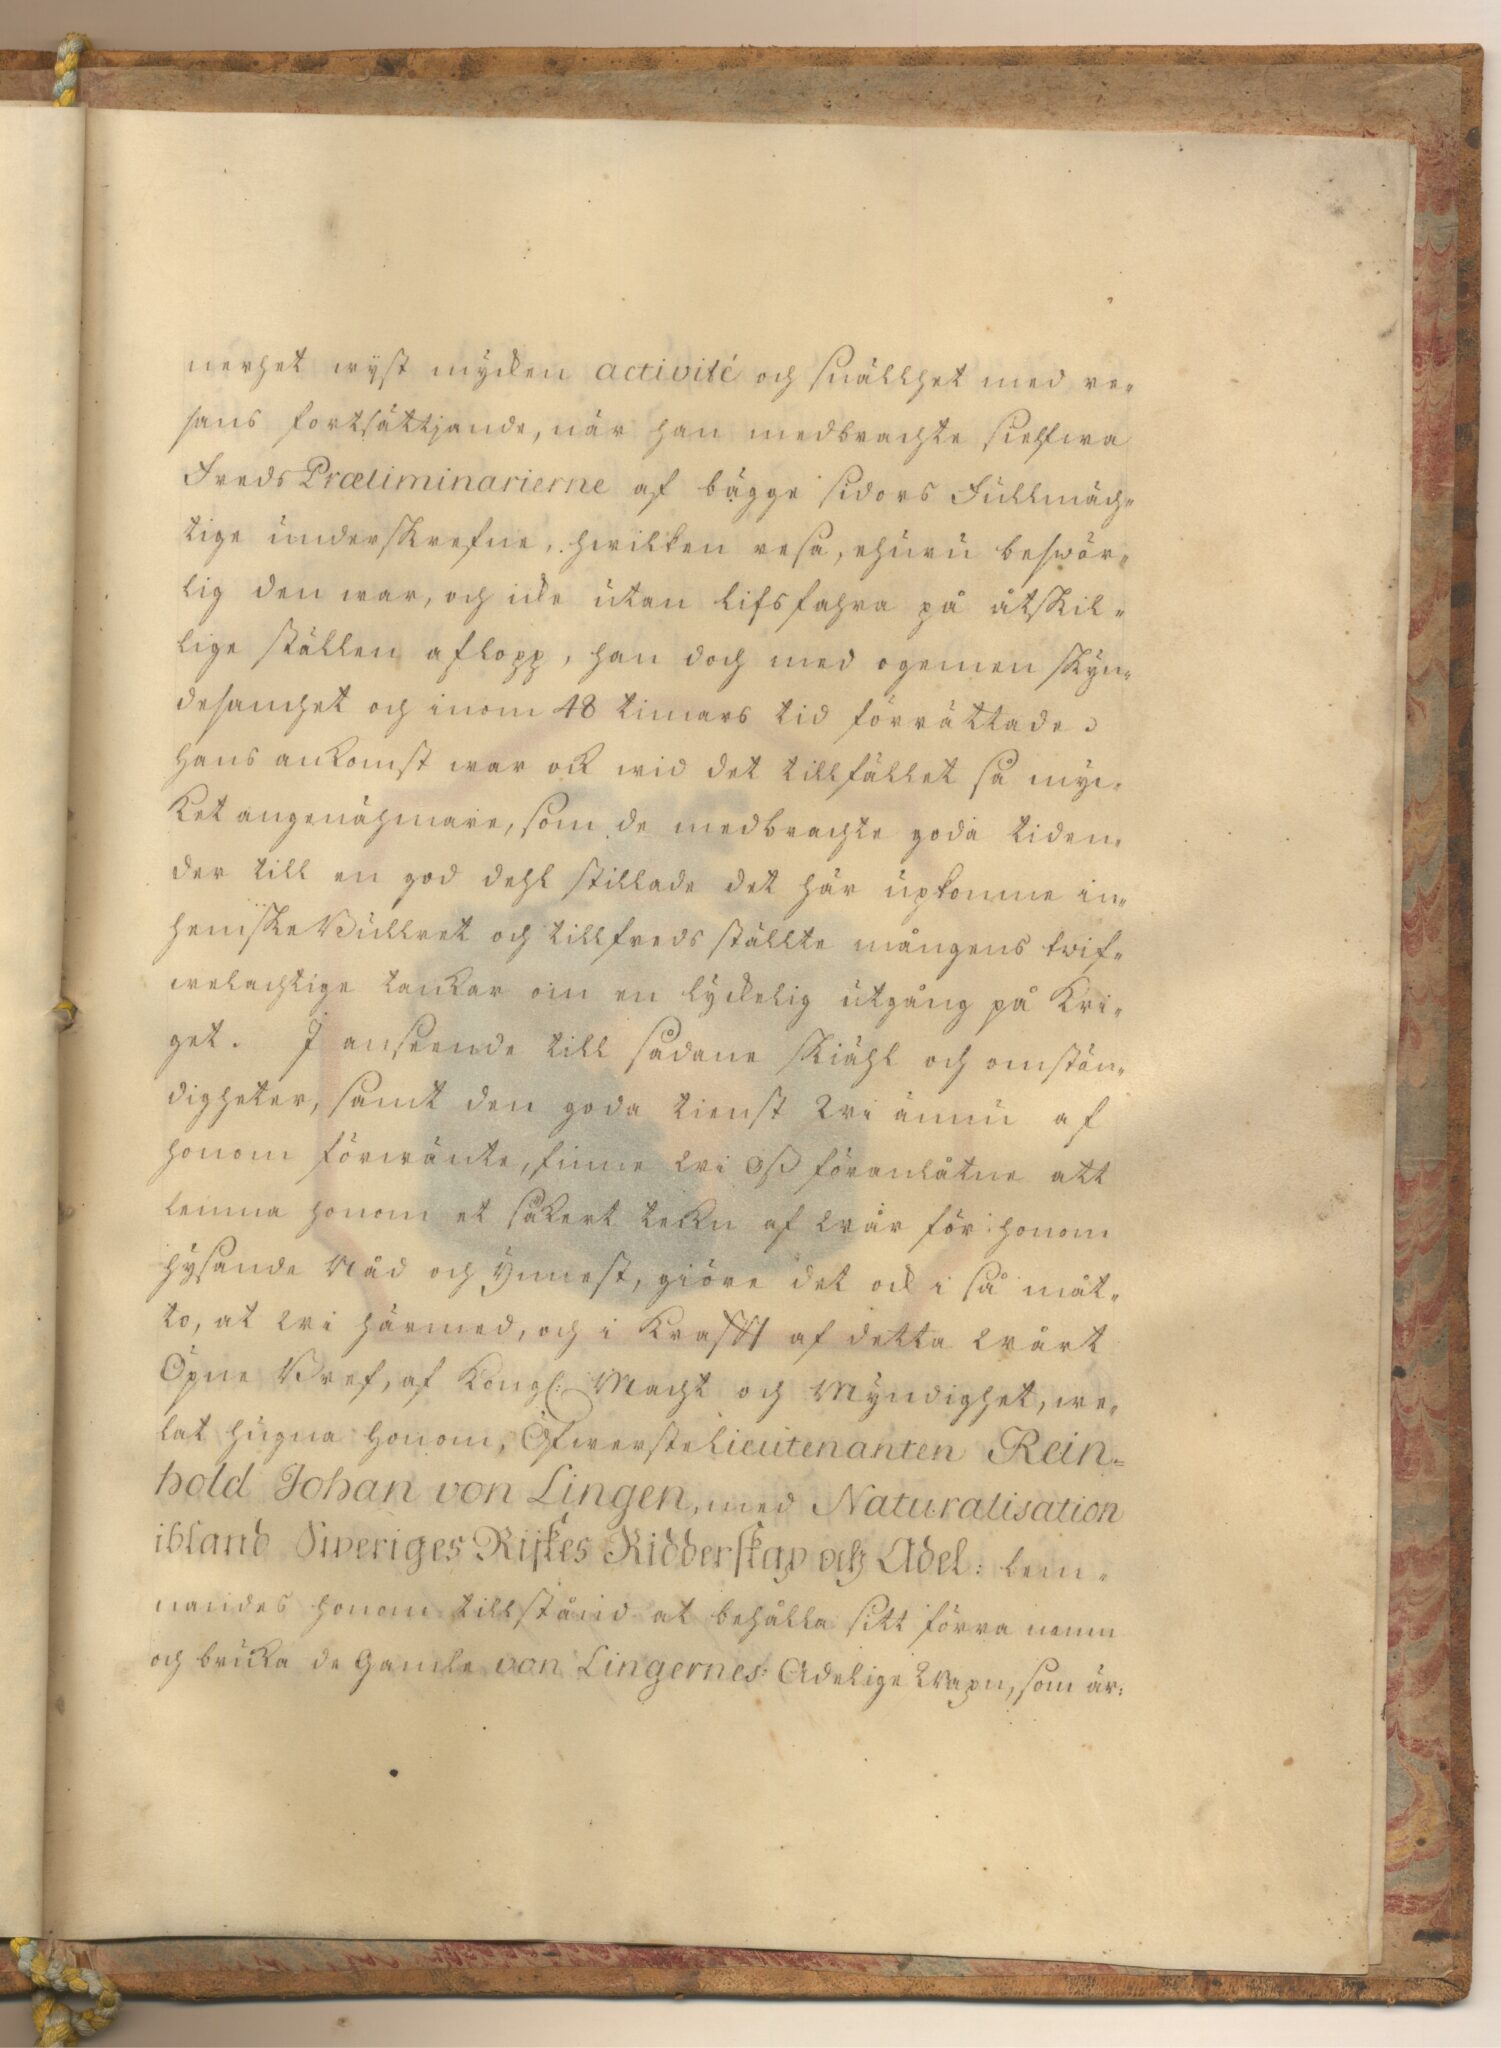 nerhet wyst mycken activité och snällhet med re-
sans fortsättjande, när han medbrachte sielfwa
Freds Præliminarierne af bägge sidors Fullmäch-
tige underskrefne, hwilken resa, ehuru beswär-
lig den war, och icke utan lifsfahra på åtskil-
lige ställen aflopp, han doch med ogemen skyn-
desamhet och inom 48 timars tid förrättade:
hans ankomst war ock wid det tillfället så myc-
ket angenähmare, som de medbrachte goda tiden-
der till en god dehl stillade det här upkomne in-
hemske Bullret och tillfreds ställte mångens twif-
welachtige tankar om en lyckelig utgång på Kri-
get. I anseende till sådane skiähl och omstän-
digheter, samt den goda tienst Wi ännu af
honom förwänte, finne Wi Oss föranlåtne att
lemna honom et säkert tekn af Wår för honom
hysande Nåd och Ynnest, giöre det ock i så måt-
to, at Wi härmed, och i Krafft af detta Wårt
Öpne Bref, af Kongl: Macht och Myndighet, we-
lat hugna honom, Öfwerste Lieutenanten Rein-
hold Johan von Lingen, med Naturalisation
ibland Sweriges Rijkes Ridderskap och Adel: lem-
nandes honom tillstånd at behålla sitt förra namn
och bruka de Gamle von Lingernes Adelige Wapn, som är: